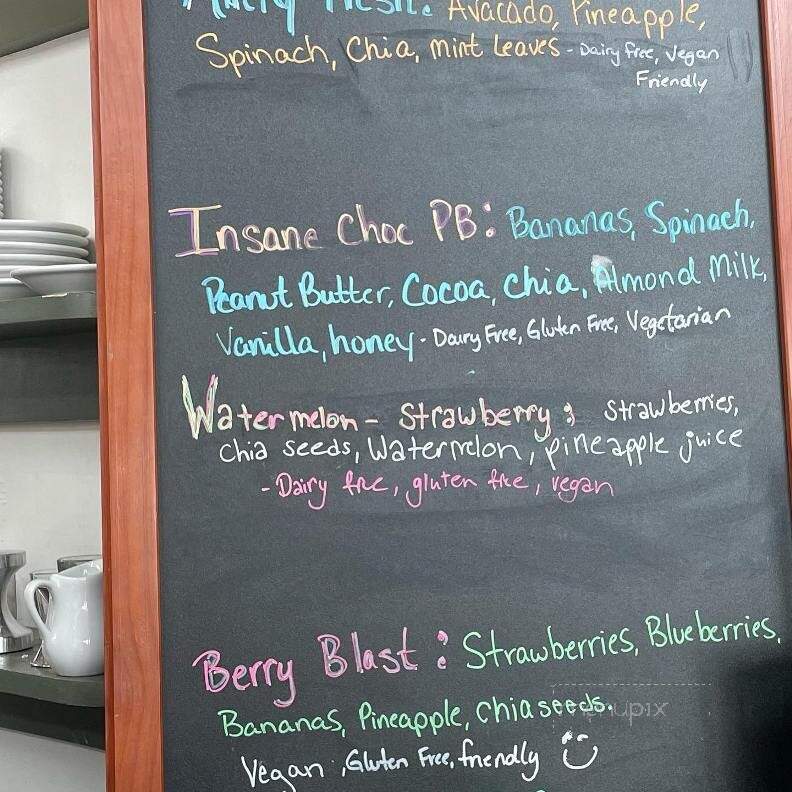 Minty Fresh: Avacado, Pineapple,
Spinach, Chia, mint Leaves - Dairy free, Vegan
Friendly
Insane Choc PB: Bananas, Spinach,
Peanut Butter, Cocoa, Chia, Almond Milk,
Vanilla, honey - Dairy Free, Gluten Free, Vegetarian
Watermelon - Strawberry: Strawberries,
chia seeds, Watermelon, pineapple juice
- Dairy free, gluten free, vegan
Berry Blast: Strawberries, Blueberries,
Bananas, Pineapple, chia seeds.
menupix
Vegan, Gluten Free, friendly